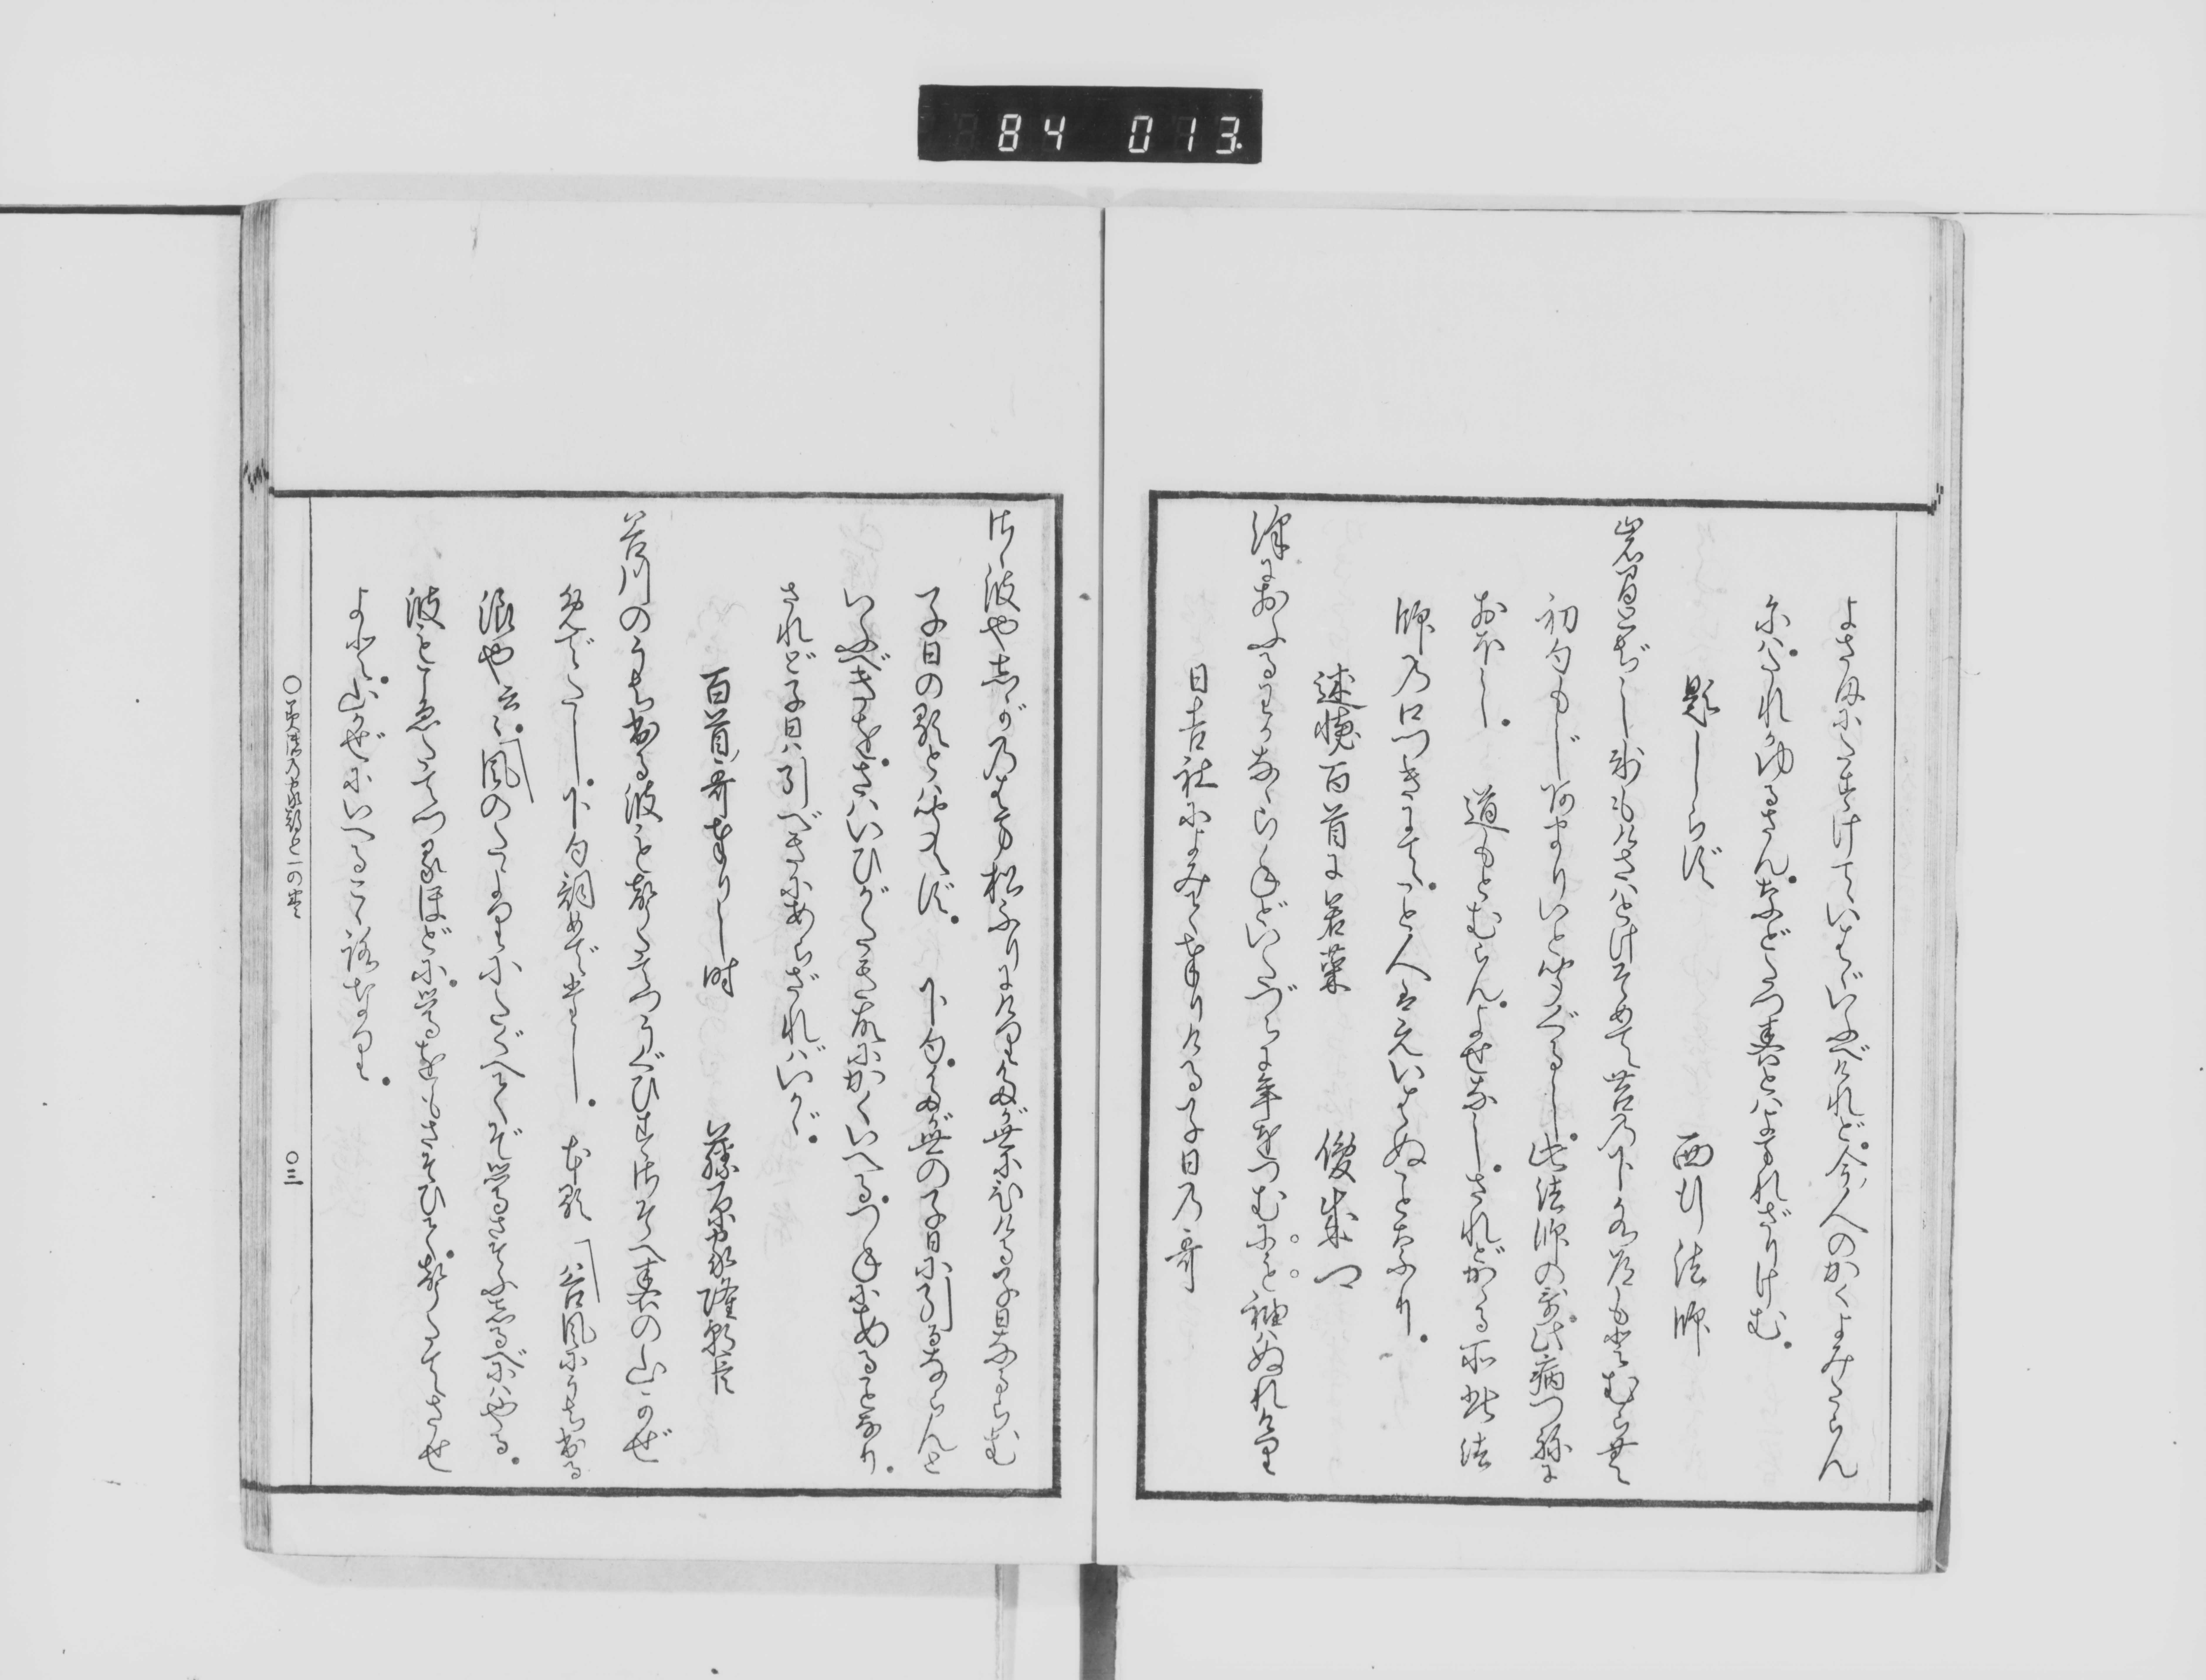 よさまにたすけていはゞいふべけれど。今人のかくよみたらん
には。たれかゆるさん。などたゞ春とはよまれざりけむ。
題しらず　西行法師
岩間とぢし氷もけさはとけそめて苔の下水道もとむらむ
初句もじあまりいと聞ぐるし。此法師の哥。此病つねに
おほし。　道もとむらん。よせなし。されどかゝる所此法
師の口つきにて。こと人はえいはぬことなり。
述懐百首に若菜　俊成卿
沢におふるわかなならねどいたづらに年をつむにも袖はぬれけり
日吉社によみて奉りける子日の哥
さゝ波や志がのはま松ふりにけりたが世にひける子日なるらむ
子日の歌とは聞えず。　下句。たが世の子日に引るならんと
いふべきを。さはいひがたき故にかくいへる。つねにあることなり。
されど子日は引べきにあらざればいかゞ。
百首哥奉りし時　藤原家隆朝臣
谷川のうち出る波も聲たてつうぐひすさそへ春の山かぜ
めでたし。下句詞めでたし。　本歌「谷風にうち出る
浪や云々。「風のたよりにたぐへてぞ鶯さそふしるべにはやる。
波もこゑたてつるほどに。鶯をもさそひて。聲たてさせ
よと。山かぜにいへるこゝろなり。
○美濃乃家都登一の巻　○三
84 013